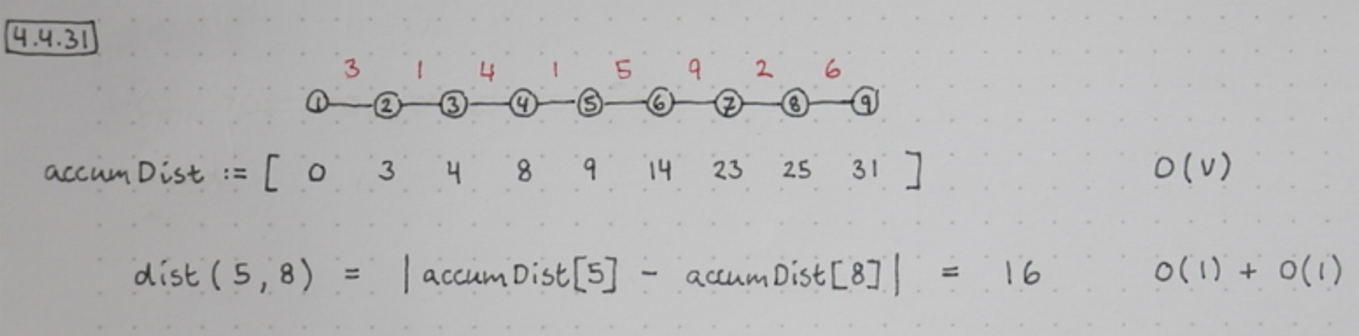 4.4.31
3 1 4 1 5 9 2 6
1 2 3 4 5 6 7 8 9
accumDist := [ 0 3 4 8 9 14 23 25 31 ] O(V)
dist(5,8) = |accumDist[5] - accumDist[8]| = 16 O(1) + O(1)